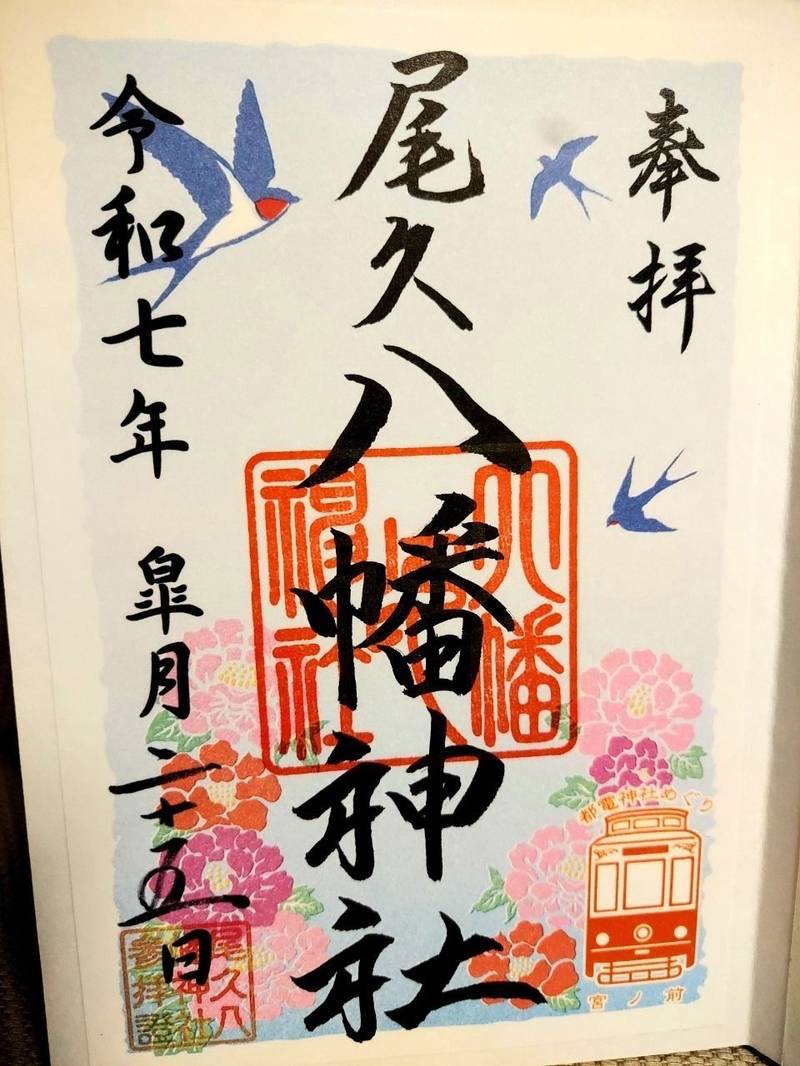 奉拝
尾久八幡神社
令和七年 皐月二十五日
都電神社めぐり
宮ノ前
尾久八
幡神社
参拝證